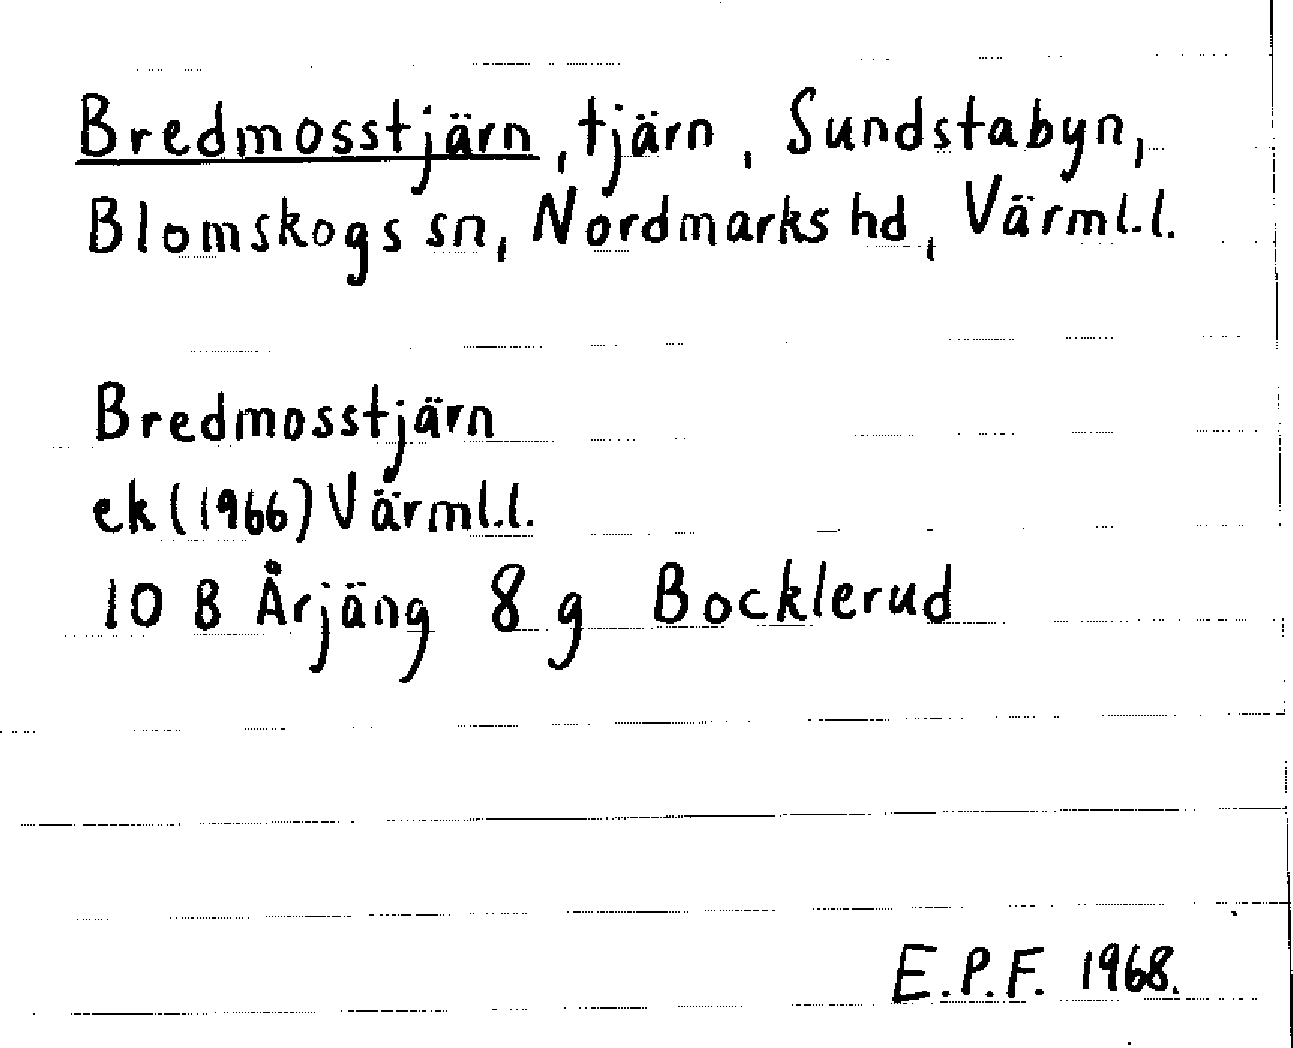 Bredmosstjärn, tjärn, Sundstabyn,
Blomskogs sn, Nordmarks hd, Värml.l.
Bredmosstjärn
ek (1966) Värml.l.
10 B Årjäng 8 g Bocklerud
E.P.F. 1968.